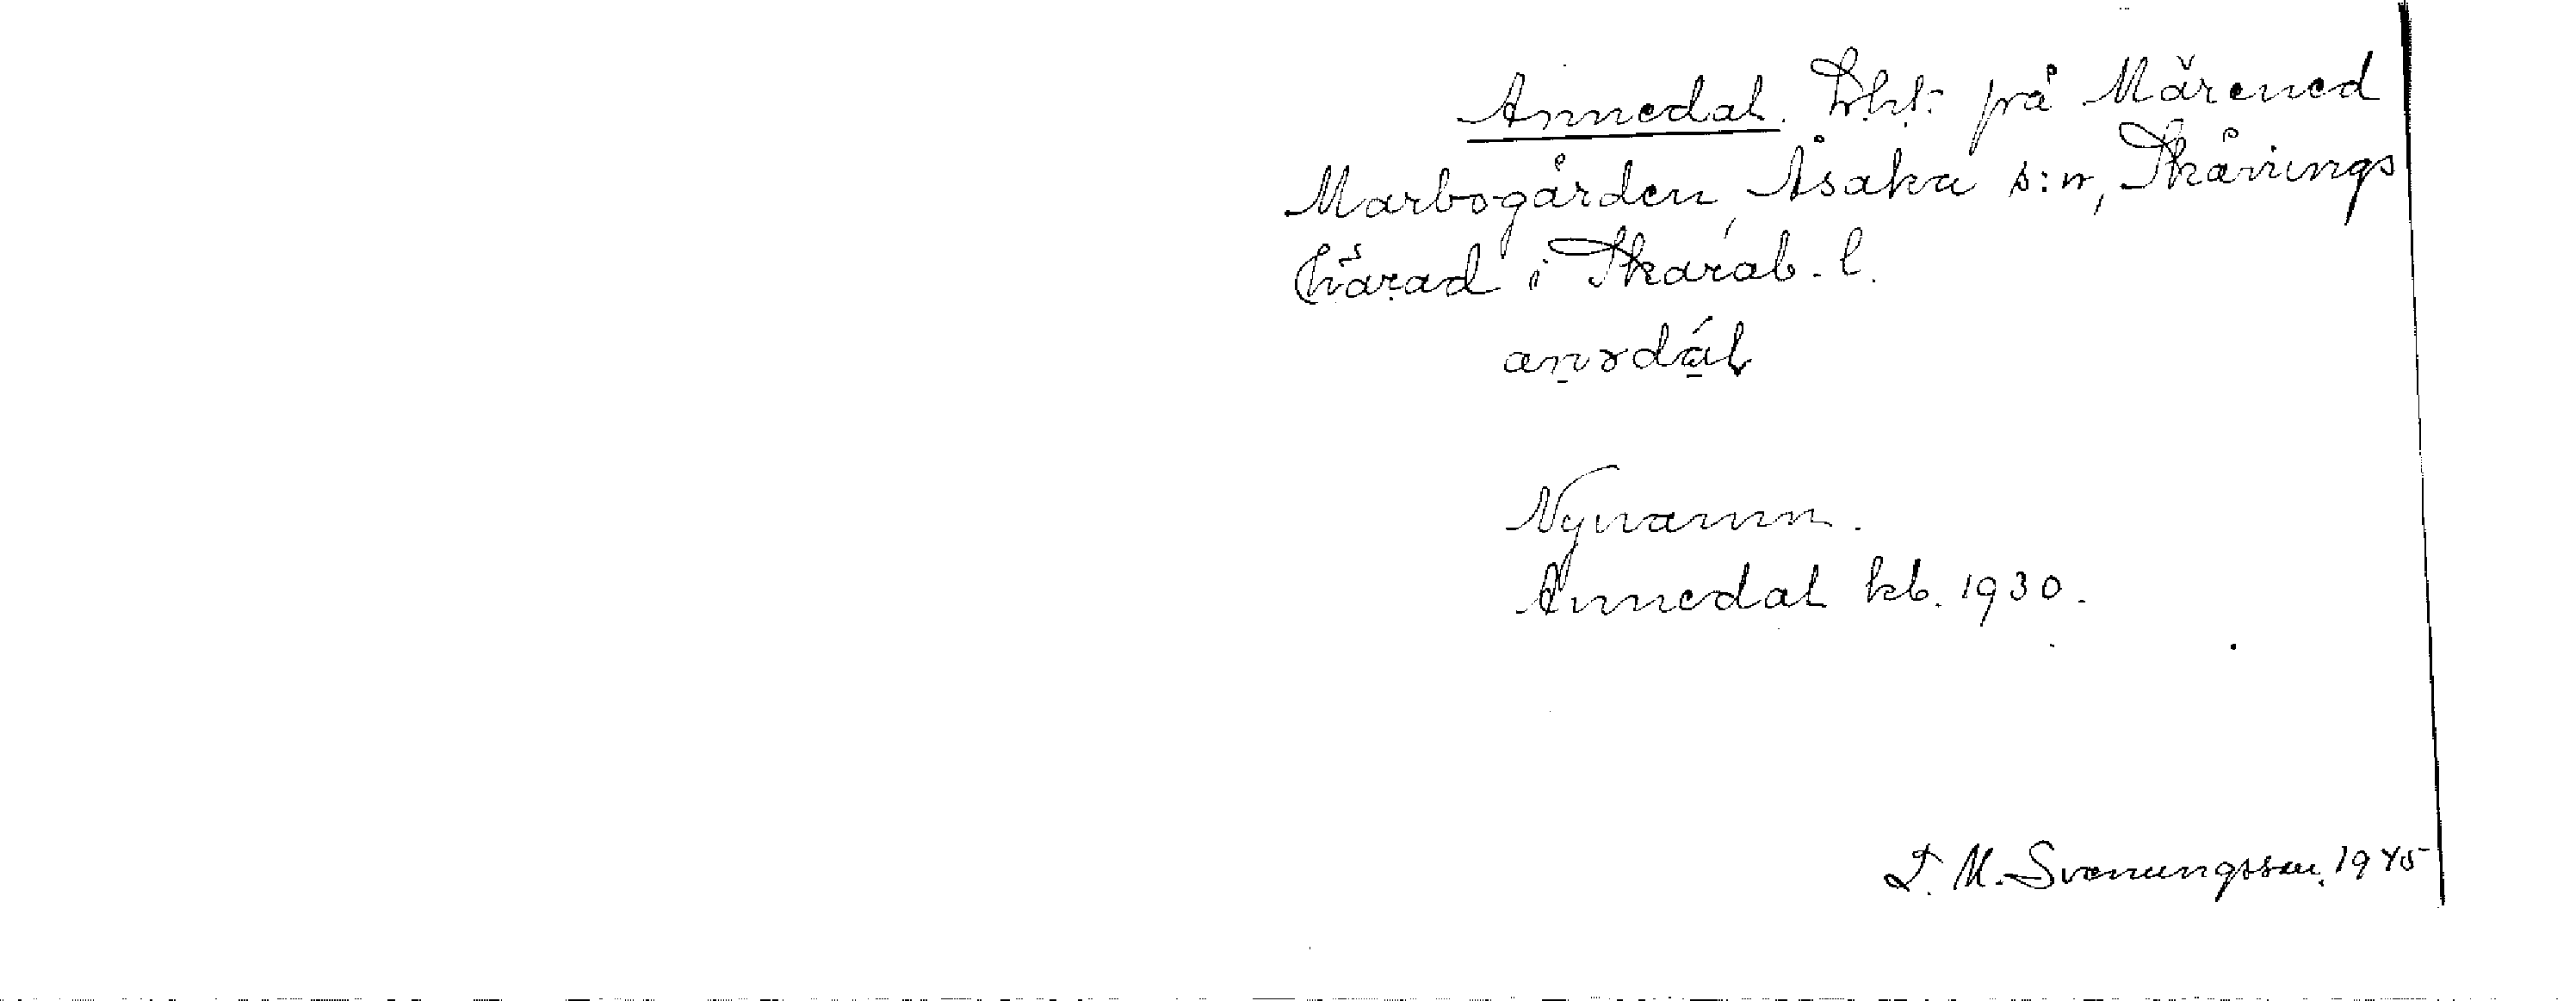 Annedal. Lht. på Mårened
Marbogården, Åsaka s:n, Skånings
härad i Skarab. l.
Nynamn.
Annedal kb. 1930.
I. M. Svenungsson. 1945